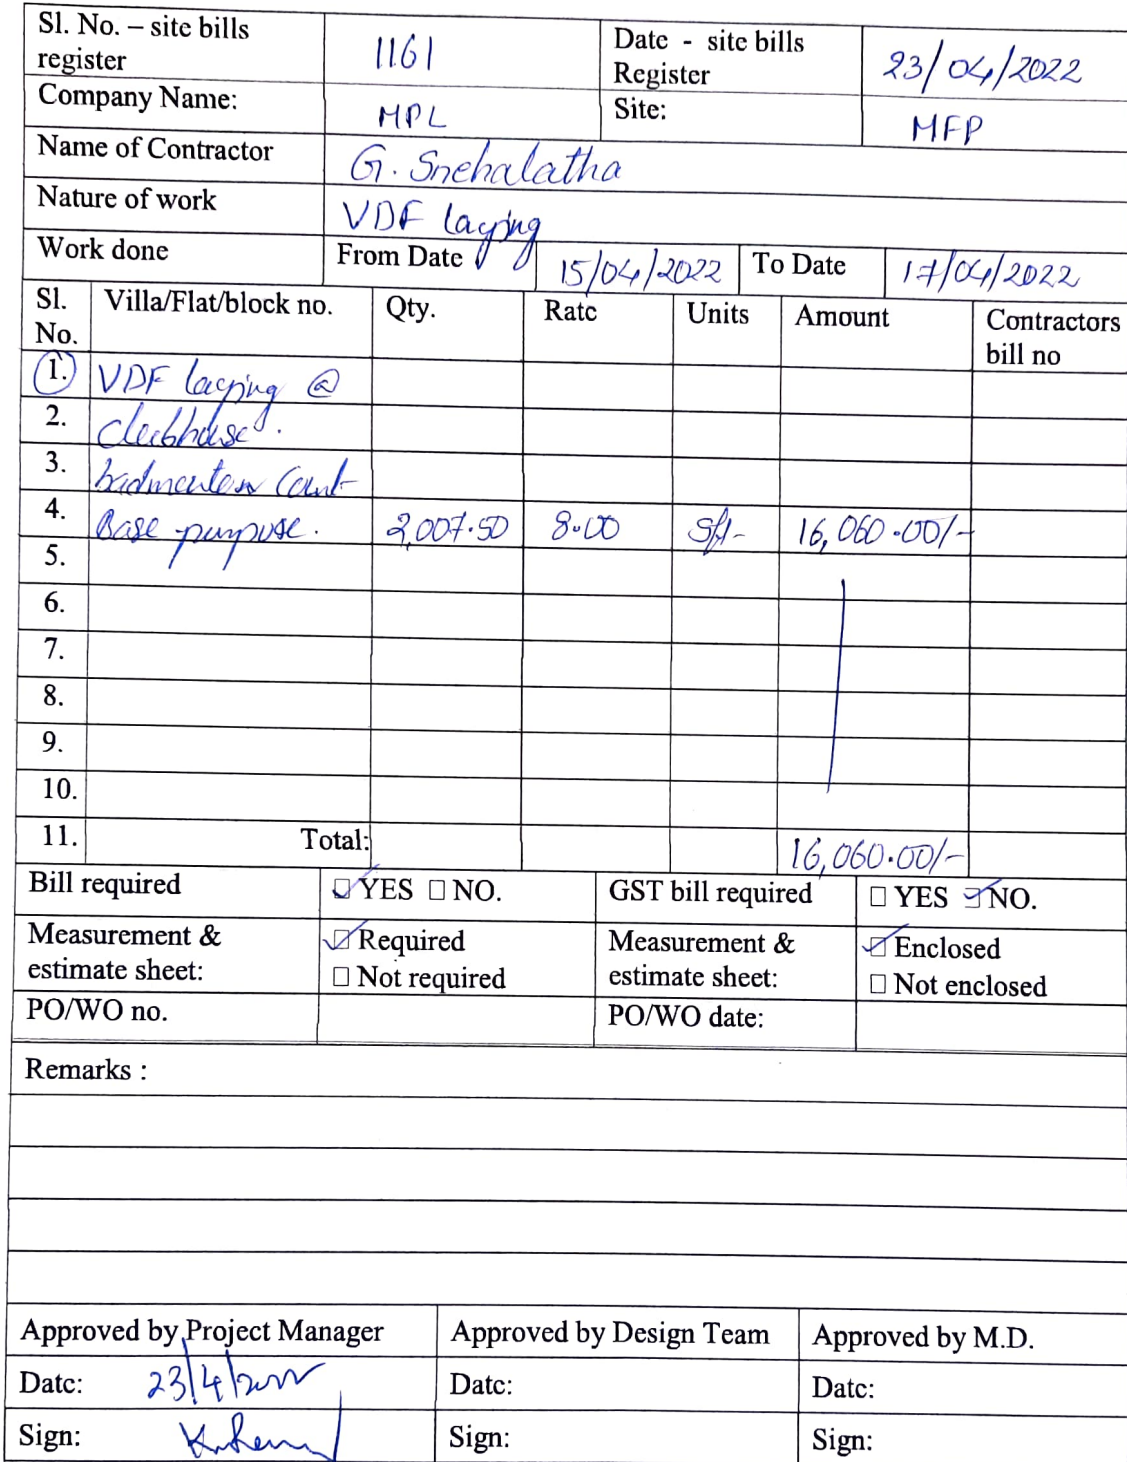 Sl. No. – site bills register 1161 Date - site bills Register 23/04/2022
Company Name: MPL Site: MFP
Name of Contractor G. Snehalatha
Nature of work VDF laying
Work done From Date 15/04/2022 To Date 17/04/2022
Sl. No. Villa/Flat/block no. Qty. Rate Units Amount Contractors bill no
1. VDF laying @
2. clubhouse.
3. badmenton Court
4. Base purpose. 2,007.50 8.00 Sft- 16,060.00/-
5.
6.
7.
8.
9.
10.
11. Total: 16,060.00/-
Bill required YES NO. GST bill required YES NO.
Measurement & estimate sheet: Required Not required Measurement & estimate sheet: Enclosed Not enclosed
PO/WO no. PO/WO date:
Remarks :
Approved by Project Manager Approved by Design Team Approved by M.D.
Date: 23/4/2022 Date: Date:
Sign: Sign: Sign: